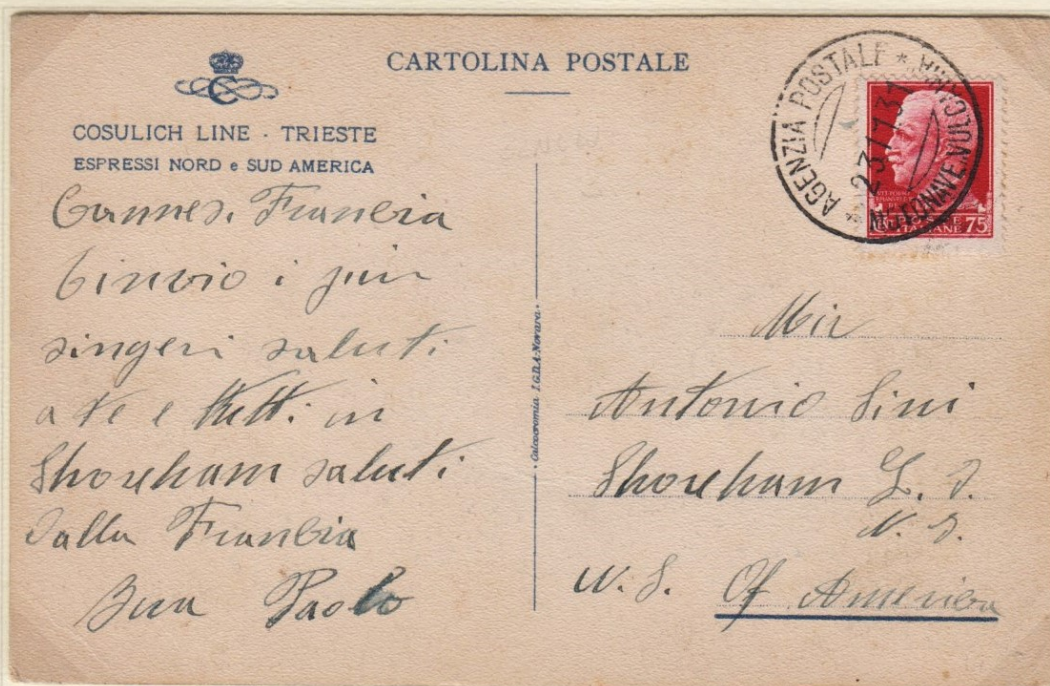 CARTOLINA POSTALE
COSULICH LINE - TRIESTE
ESPRESSI NORD e SUD AMERICA
Cannes. Francia
t'invio i piu
singeri saluti
a te e tutti in
Shoreham saluti
dalla Francia
Paolo
Calcocromia I.G.D.A. Novara
* AGENZIA POSTALE * MOTONAVE VULCANIA
23 7 31
POSTE
ITALIANE 75
Antonio Sini
Shoreham L. I.
N.
U. S. Of America